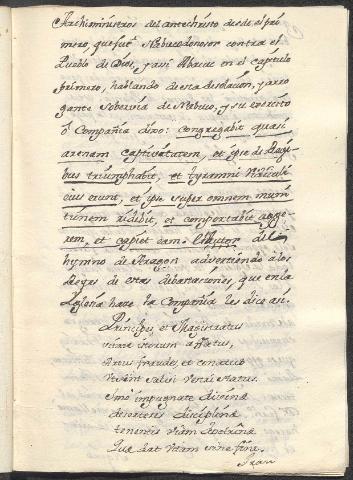 Archiministros del antechristo desde el pri
mero que fue Nabucodonosor contra el
Pueblo de Dios, y assi Abacuc en el capitulo
primero, hablando de esta desolacion, y arro
gante sobervia de Nabuco, y su exercito
ô Compañia dixo: congregabit quasi
arenam captivitatem, et ipse de Regi
bus triumphabit, et tyranni ridiculi
eius erunt, et ipse super omnem muni
tionem ridebit, et comportabit agge
rem, et capiet eam. El Autor del
hymno de Aragon advertiendo à los
Reyes de estas debastaciones, que en la
Iglesia hace la Compañia les dice asi.
Principes et Magistratus
istorum affatus,
fraudes, et conatus
status.
impugnate divina
disciplinæ
tenentes viam doctrinæ
Quæ dat vitam sine fine.